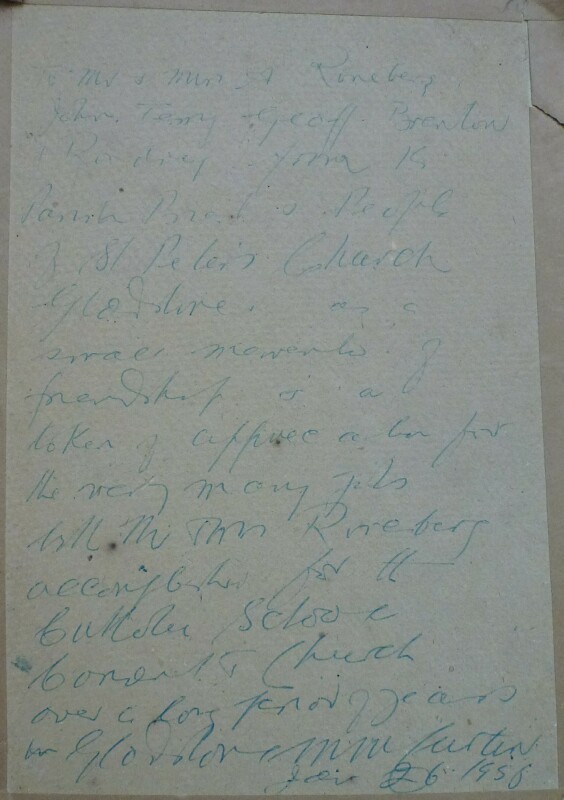 To Mr & Mrs A Roneberg
John. Terry Geoff. Brenton
& Rodney from the
Parish Priest & People
of St Peter's Church
Gladstone. as a
small memento of
friendship & a
token of appreciation for
the very many jobs
both Mr & Mrs Roneberg
accomplished for the
Catholic School
Convent & Church
over a long period of years
in Gladstone
Jan 26. 1958